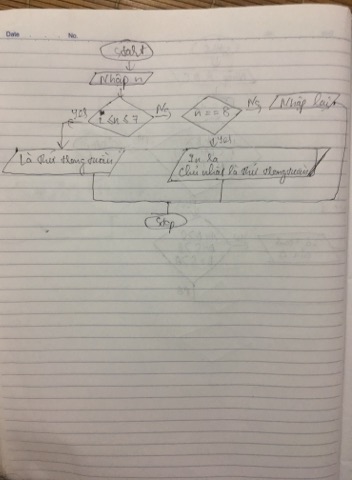 Date No.
start
Nhập n
yes
2 ≤ n ≤ 7
No
n == 8
No
Nhập lại
yes
Là thứ trong tuần
In ra
Chủ nhật là thứ trong tuần
stop